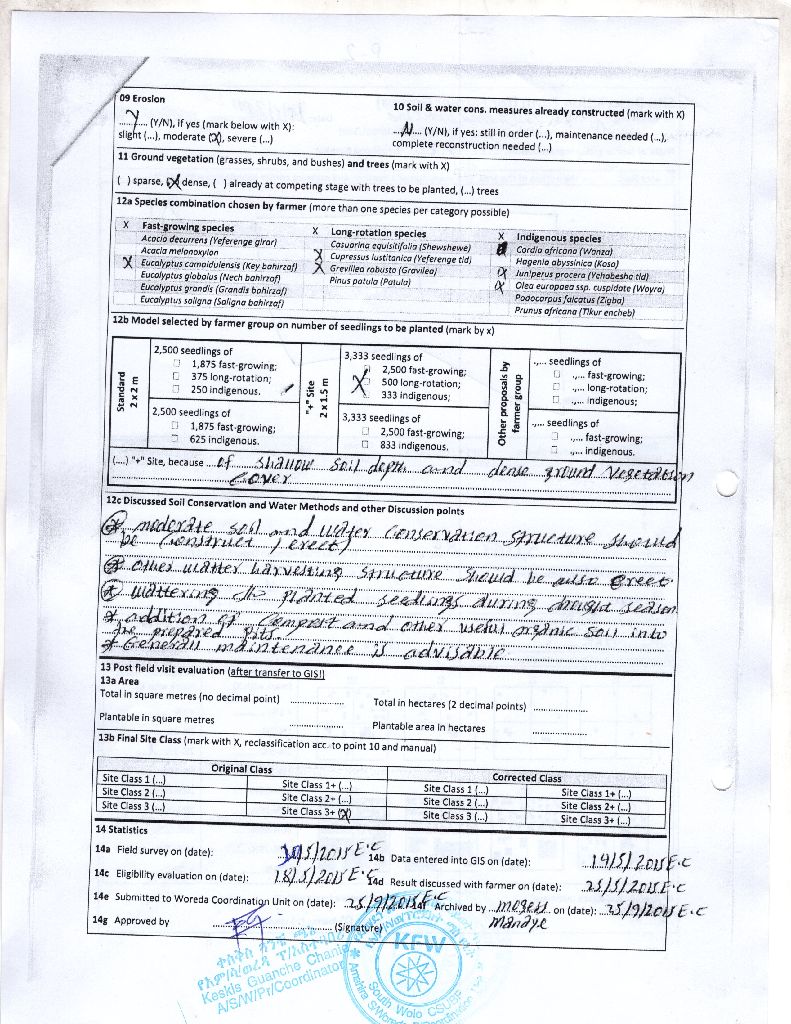 09 Erosion
10 Soil & water cons. measures already constructed (mark with X)
..Y.. (Y/N), if yes (mark below with X):
slight (...), moderate (X), severe (...)
..N.. (Y/N), if yes: still in order (...), maintenance needed (...),
complete reconstruction needed (...)
11 Ground vegetation (grasses, shrubs, and bushes) and trees (mark with X)
( ) sparse, (X) dense, ( ) already at competing stage with trees to be planted, (...) trees
12a Species combination chosen by farmer (more than one species per category possible)
X Fast-growing species
Acacia decurrens (Yeferenge girar)
Acacia melanoxylon
X Eucalyptus camaldulensis (Key bahirzaf)
Eucalyptus globolus (Nech bahirzaf)
Eucalyptus grandis (Grandis bahirzaf)
Eucalyptus saligna (Saligna bahirzaf)
X Long-rotation species
Casuarina equisitifolia (Shewshewe)
X Cupressus lustitanica (Yeferenge tid)
X Grevillea robusta (Gravilea)
Pinus patula (Patula)
X Indigenous species
Cordia africana (Wanza)
Hagenia abyssinica (Koso)
X Juniperus procera (Yehabesha tid)
X Olea europaea ssp. cuspidate (Woyra)
Podocarpus falcatus (Zigba)
Prunus africana (Tikur encheb)
12b Model selected by farmer group on number of seedlings to be planted (mark by x)
Standard
2 x 2 m
2,500 seedlings of
1,875 fast-growing;
375 long-rotation;
250 indigenous.
2,500 seedlings of
1,875 fast-growing;
625 indigenous.
"+" Site
2 x 1.5 m
3,333 seedlings of
2,500 fast-growing;
X 500 long-rotation;
333 indigenous;
3,333 seedlings of
2,500 fast-growing;
833 indigenous.
Other proposals by
farmer group
.,... seedlings of
.,... fast-growing;
.,... long-rotation;
.,... indigenous;
.,... seedlings of
.,... fast-growing;
.,... indigenous.
(....) "+" Site, because ...of shallow soil depth and dense ground vegetation
cover
12c Discussed Soil Conservation and Water Methods and other Discussion points
* moderate soil and water conservation structure should
be construct (erect)
* other watter harvesting structure should be also erect.
* wattering the planted seedlings during drougd season
* addition of compost and other useful organic soil into
the prepared pits
* General maintenance is advisable
13 Post field visit evaluation (after transfer to GIS!!)
13a Area
Total in square metres (no decimal point) ................
Total in hectares (2 decimal points) ................
Plantable in square metres ................
Plantable area in hectares ................
13b Final Site Class (mark with X, reclassification acc. to point 10 and manual)
Original Class
Corrected Class
Site Class 1 (...) Site Class 1+ (...) Site Class 1 (...) Site Class 1+ (...)
Site Class 2 (...) Site Class 2+ (...) Site Class 2 (...) Site Class 2+ (...)
Site Class 3 (...) Site Class 3+ (X) Site Class 3 (...) Site Class 3+ (...)
14 Statistics
14a Field survey on (date): 10/5/2015 E.C
14b Data entered into GIS on (date): 19/5/2015 E.C
14c Eligibility evaluation on (date): 18/5/2015 E.C
14d Result discussed with farmer on (date): 25/5/2015 E.C
14e Submitted to Woreda Coordination Unit on (date): 25/9/2015 E.C
14f Archived by mogess manaye on (date): 25/9/2015 E.C
14g Approved by ................ (Signature)
Keskis Guanche Chanie
A/S/W/Pr/Coordinator
KFW
South Wolo CSUBF